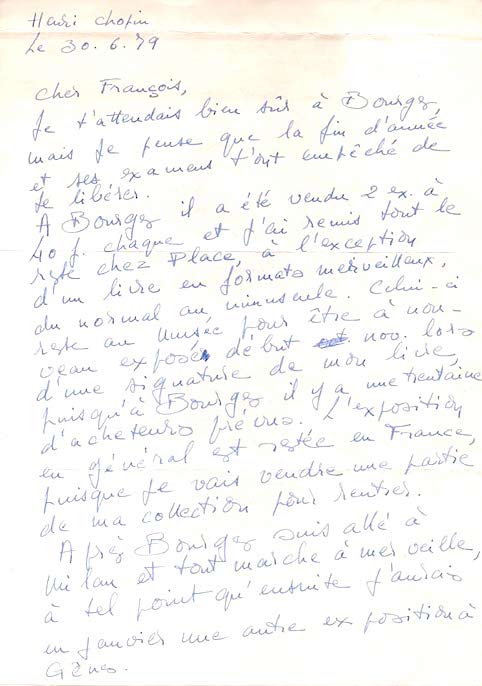 Henri Chopin
Le 30.6.79
Cher François,
Je t'attendais bien sûr à Bourges,
mais je pense que la fin d'année
et ses examens t'ont empêché de
te libérer.
A Bourges il a été vendu 2 ex. à
40 f. chaque et j'ai remis tout le
reste chez Place, à l'exception
d'un livre en formats merveilleux,
du normal au minuscule. Celui-ci
reste au Musée pour être à nou-
veau exposé début nov. lors
d'une signature de mon livre,
puisqu'à Bourges il y a une trentaine
d'acheteurs prévus. L'exposition
en général est restée en France,
puisque je vais vendre une partie
de ma collection pour rentrer.
Après Bourges suis allé à
Milan et tout marche à merveille,
à tel point qu'ensuite j'aurais
en janvier une autre exposition à
Gênes.